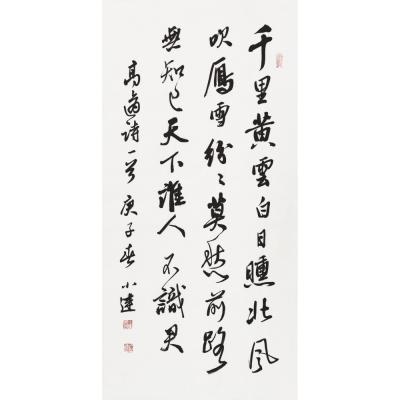 千里黄雲白日曛北風
吹雁雪紛〻莫愁前路
無知己天下誰人不識君
高適詩一首 庚子春 小達